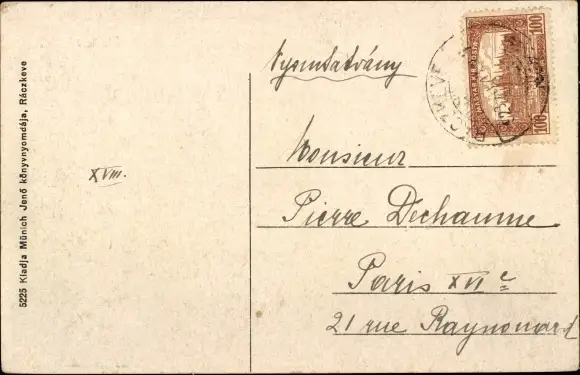 Nyomtatvány
100
MAGYAR KIR. POSTA
100
Monsieur
Pierre Dechaume
Paris XVI e
21 rue Raynouard
XVIII.
5225 Kiadja Münich Jenő könyvnyomdája, Ráczkeve